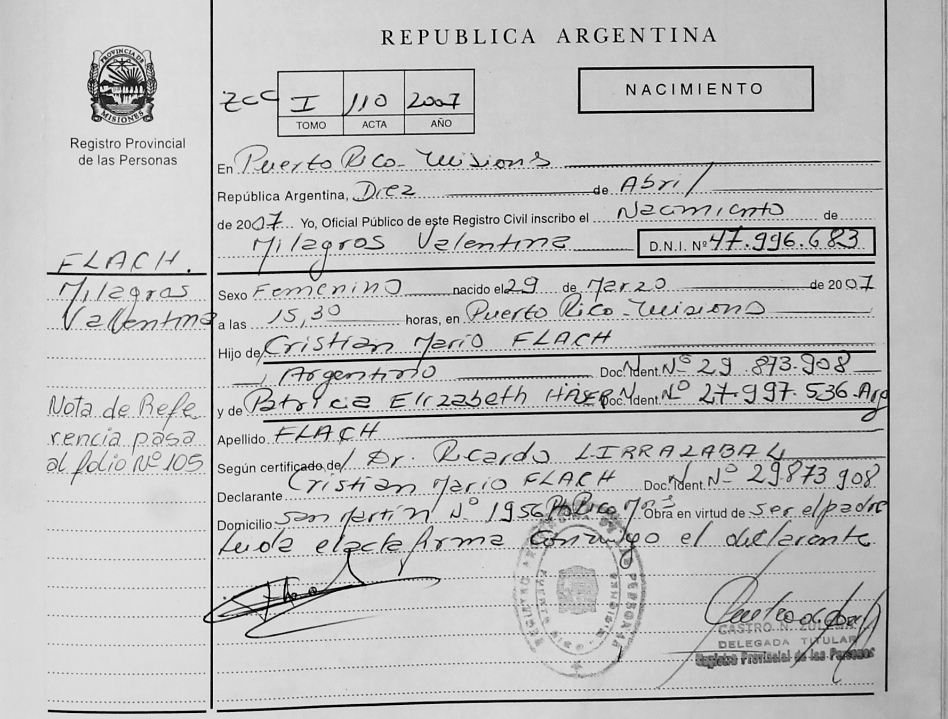 REPUBLICA ARGENTINA
PROVINCIA DE MISIONES
Registro Provincial
de las Personas
NACIMIENTO
I 110 2007
TOMO ACTA AÑO
En Puerto Rico - Misions
República Argentina, Diez de Abril
de 2007 Yo, Oficial Público de este Registro Civil inscribo el Nacimiento de
Milagros Valentina D.N.I. Nº 47.996.683
FLACH.
Milagros
Valentina
Sexo Femenino nacido el 29 de Marzo de 2007
a las 15,30 horas, en Puerto Rico - Misions
Hijo de Cristian Mario FLACH
Argentino Doc. Ident. Nº 29 873.908
y de Patricia Elizabeth Doc. Ident. Nº 27.997.536. Arg
Apellido FLACH
Según certificado del Dr. Ricardo LIRRAZABAL
Declarante Cristian Mario FLACH Doc. Ident. Nº 29873908
Domicilio San Martín Nº 1956 Pto Rico Mnes Obra en virtud de ser el padre
Leida el acta firma conmigo el declarante
Nota de Refe
rencia pasa
al folio Nº 105
CASTRO N.
DELEGADA TITULAR
Registro Provincial de las Personas